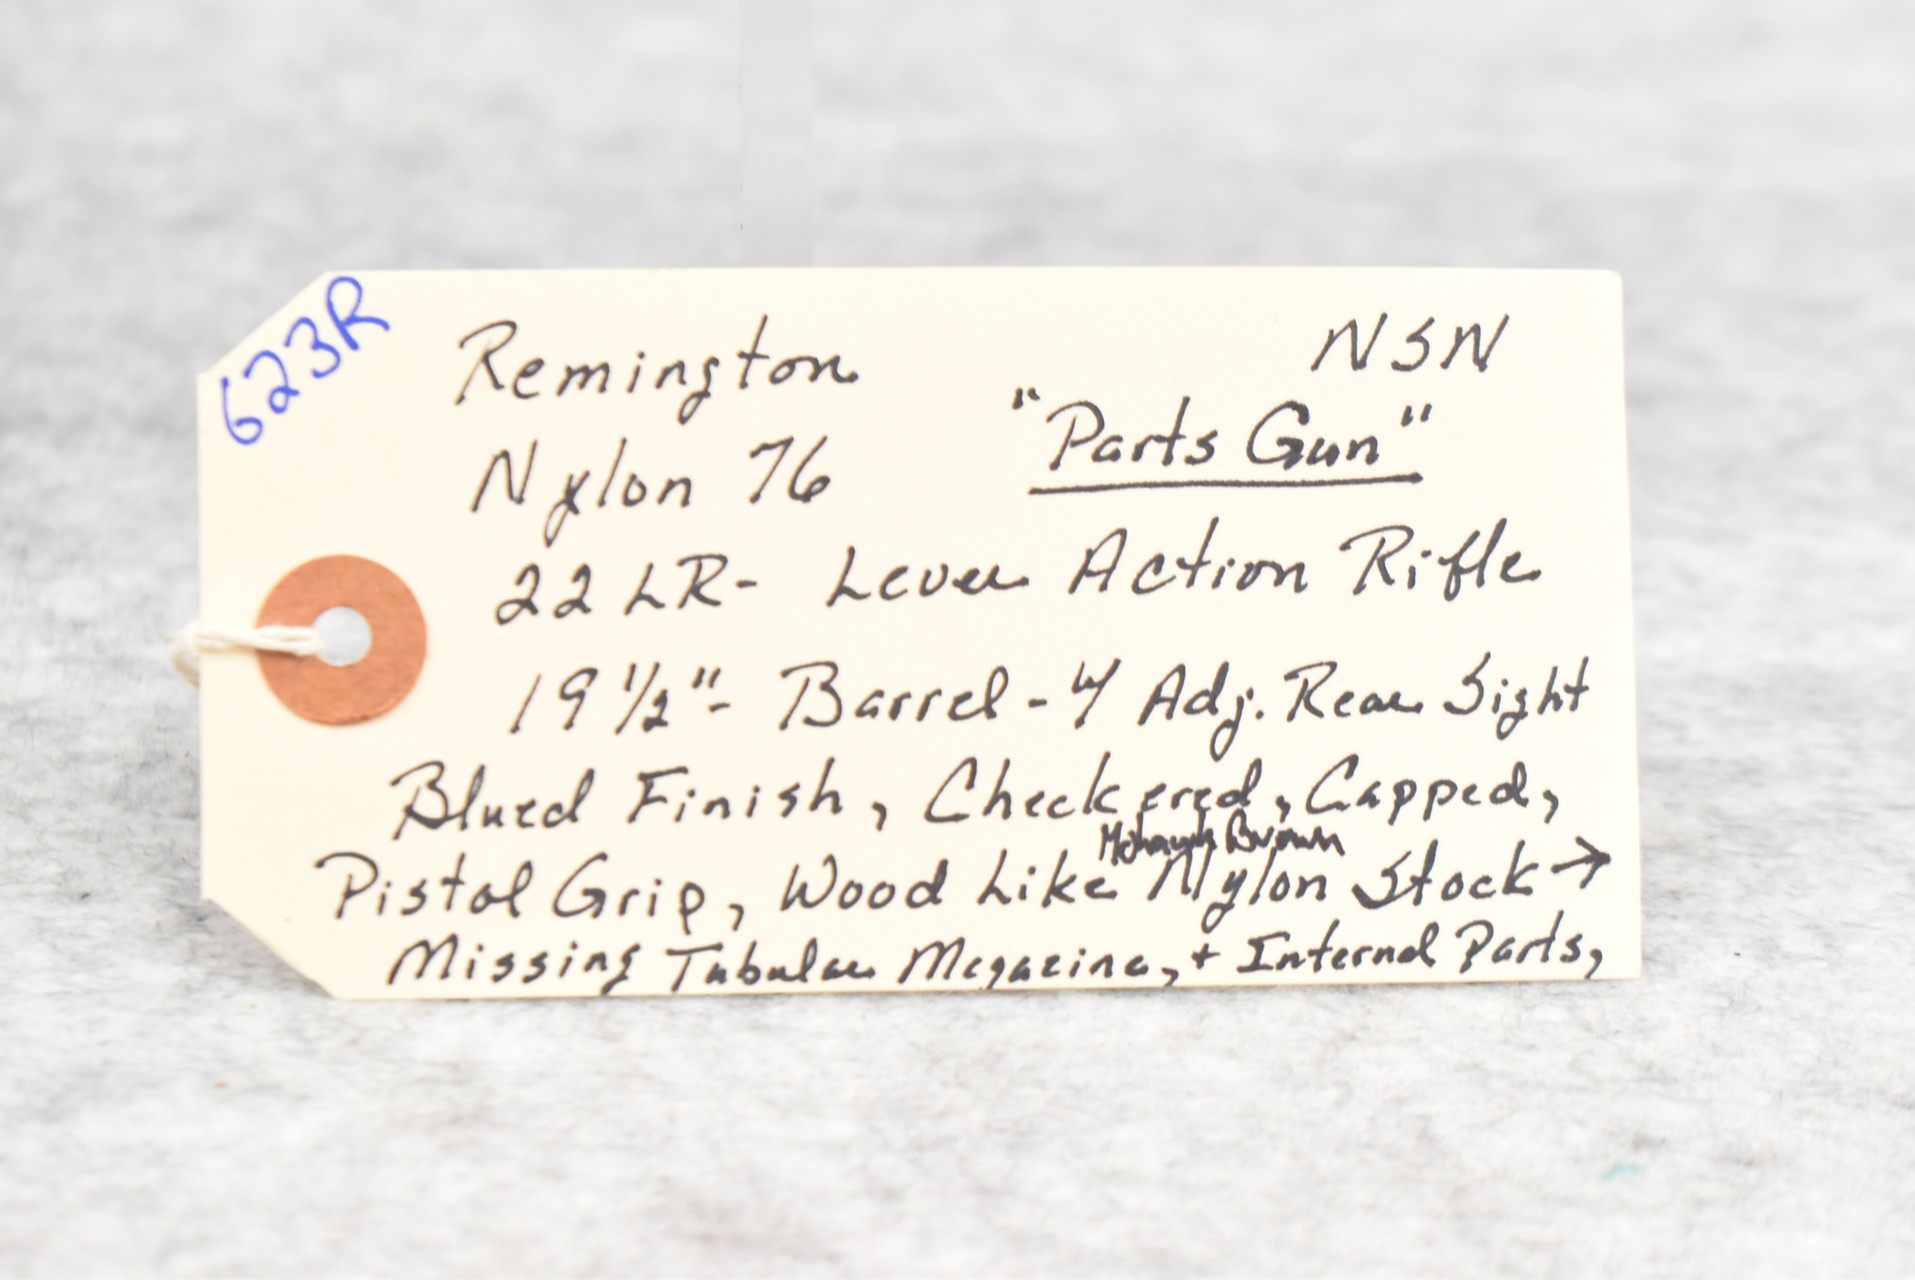 623R
Remington NSN
Nylon 76 "Parts Gun"
22 LR - Lever Action Rifle
19 1/2" - Barrel - W/ Adj. Rear Sight
Blued Finish, Checkered, Capped,
Mohawk Brown
Pistol Grip, Wood Like Nylon Stock →
Missing Tubular Magazine, + Internal Parts,